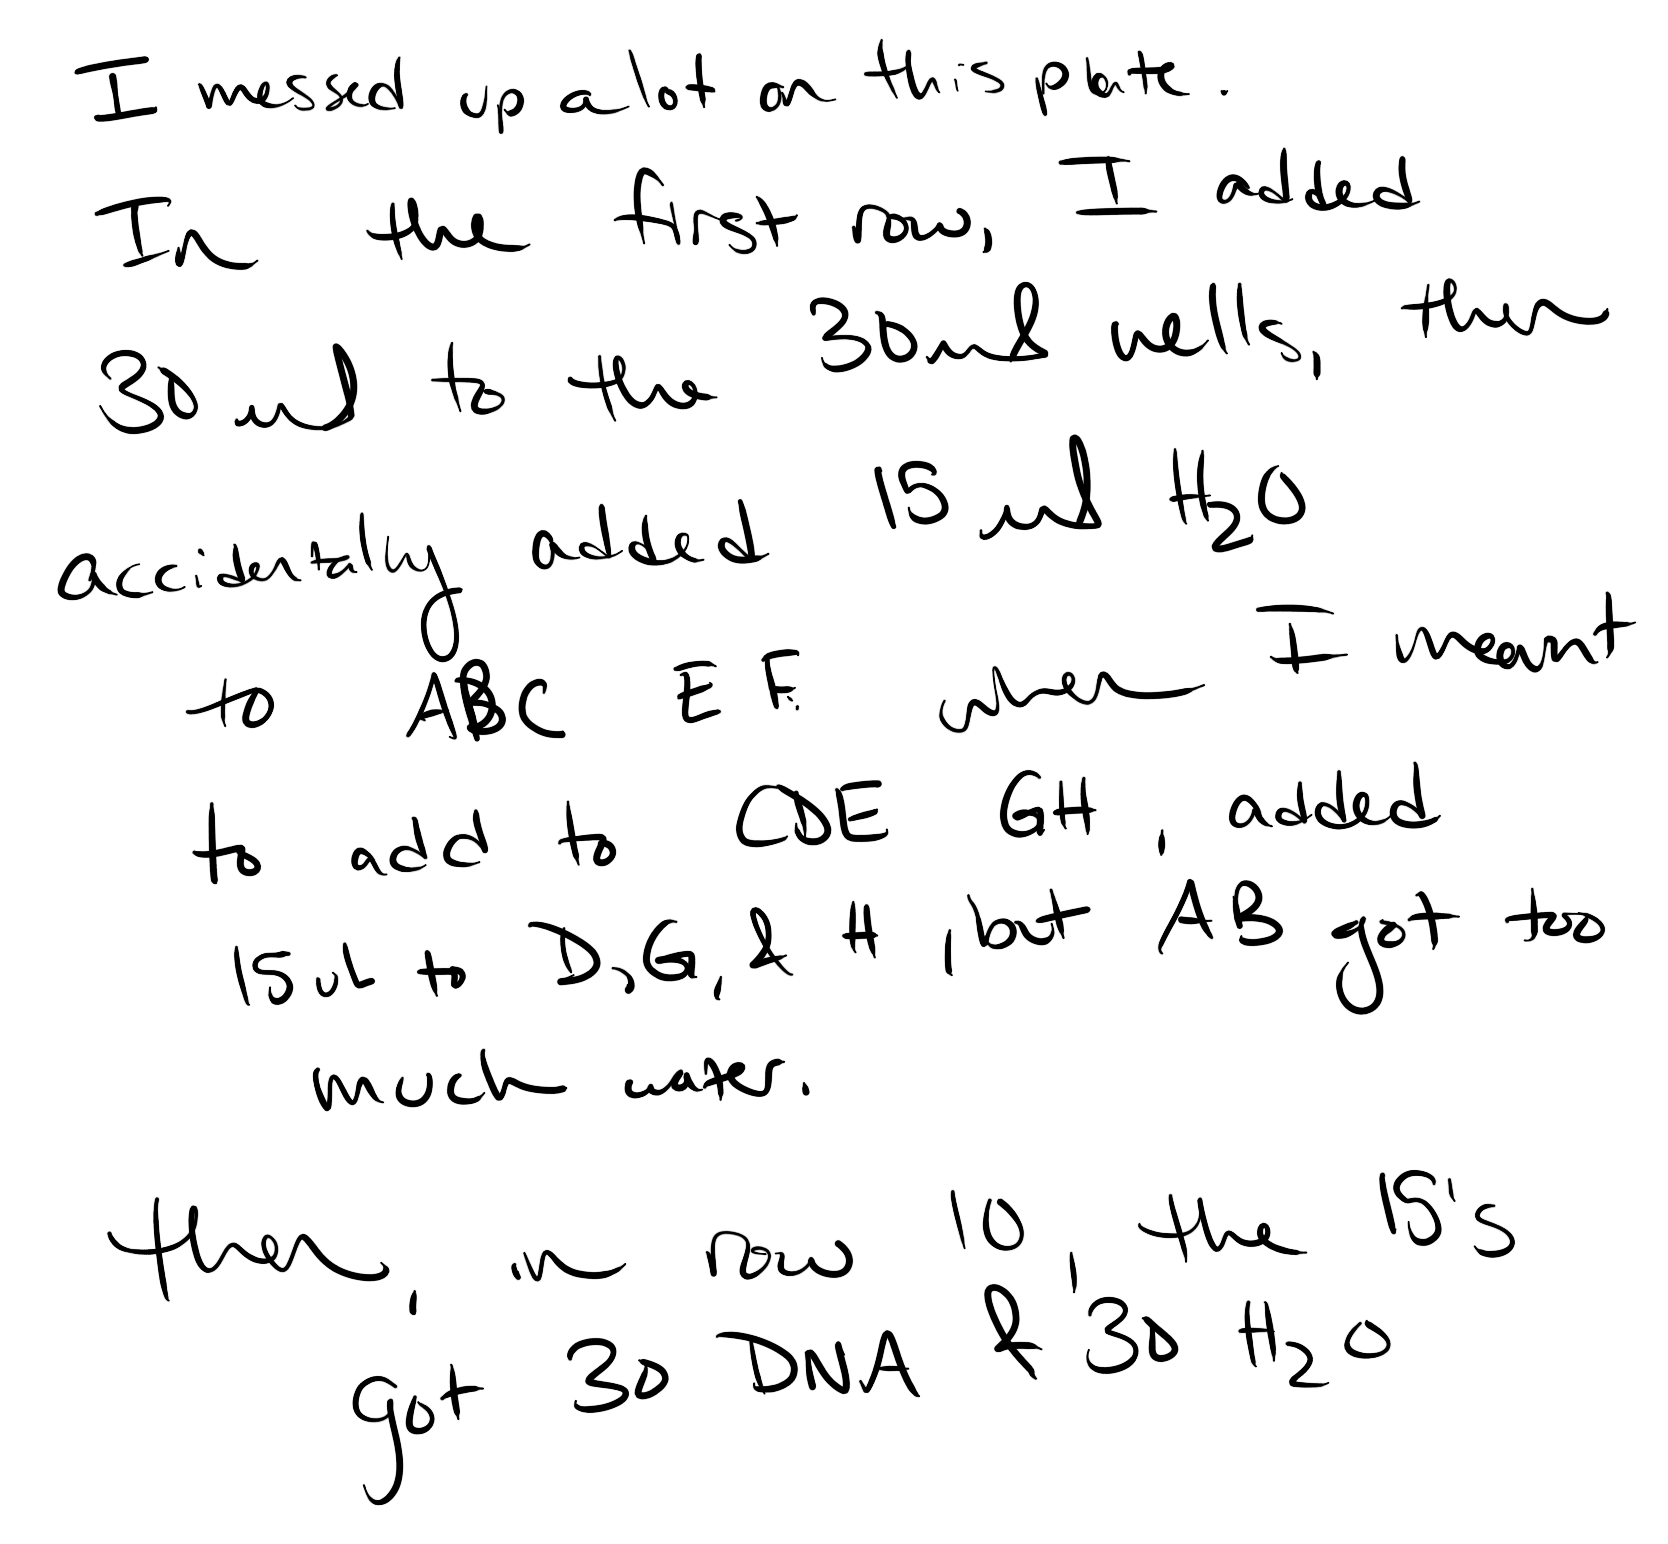 I messed up a lot on this plate.
In the first row, I added
30 ul to the 30ul wells, then
accidentally added 15 ul H2O
to ABC EF. when I meant
to add to CDE GH, added
15 uL to D, G, & H, but AB got too
much water.
then, in row 10, the 15's
got 30 DNA & 30 H2O